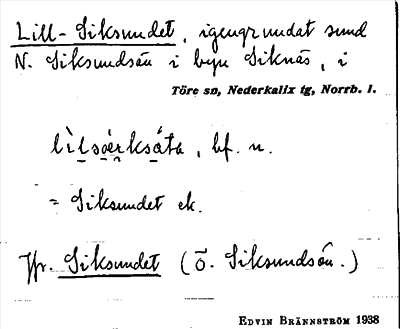 Lill-Siksundet, igengrundat sund
N. Siksundsån i byn Siknäs, i
Töre sn, Nederkalix tg, Norrb. l.
bf. n.
= Siksundet ek.
Jfr. Siksundet (Ö. Siksundsån.)
EDVIN BRÄNNSTRÖM 1938